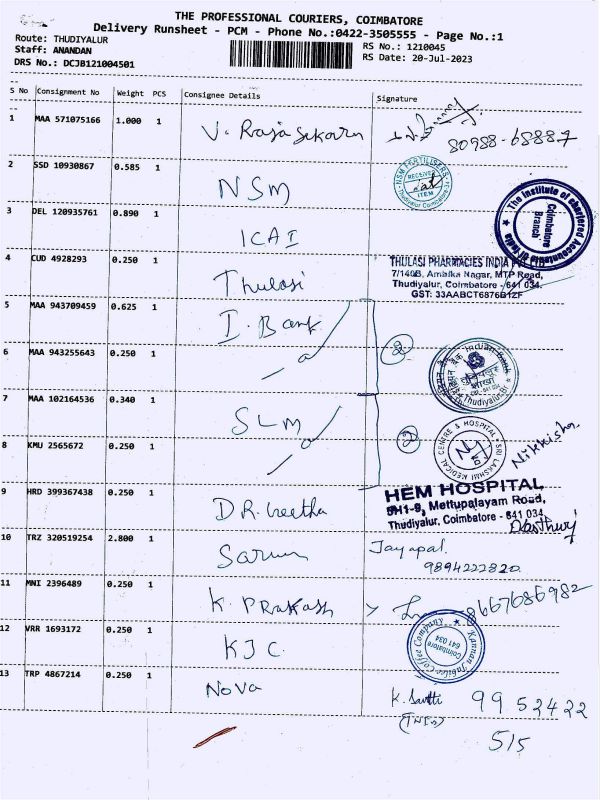 THE PROFESSIONAL COURIERS, COIMBATORE
Delivery Runsheet - PCM - Phone No.:0422-3505555 - Page No.:1
Route: THUDIYALUR
Staff: ANANDAN
DRS No.: DCJB121004501
RS No.: 1210045
RS Date: 20-Jul-2023
S No Consignment No Weight PCS Consignee Details Signature
1 MAA 571075166 1.000 1 V. Rajasekaran
80988-68887
2 SSD 10930867 0.585 1 NSM
NSM FERTILISERS
RECEIVED
Thudiyalur Coimbatore
3 DEL 120935761 0.890 1 ICAI
The Institute of Chartered Accountants of India
Coimbatore
Branch
4 CUD 4928293 0.250 1 Thulasi
THULASI PHARMACIES INDIA PVT LTD
7/140B, Ambika Nagar, MTP Road,
Thudiyalur, Coimbatore - 641 034.
GST: 33AABCT6876B1ZF
5 MAA 943709459 0.625 1 I. Bank
6 MAA 943255643 0.250 1
2
Indian Bank
Thudiyalur Br
7 MAA 102164536 0.340 1 SLM
8 KMU 2565672 0.250 1
2
SRI LAKSHMI MEDICAL CENTRE & HOSPITAL
Nikkisha
9 HRD 399367438 0.250 1 DR. Geetha
HEM HOSPITAL
5H1-9, Mettupalayam Road,
Thudiyalur, Coimbatore - 641 034.
10 TRZ 320519254 2.800 1 Sarun
Jayapal.
9894222820.
11 MNI 2396489 0.250 1 K. PRakash
8667686982
12 VRR 1693172 0.250 1 KJC.
Kannan Jubilee Coffee Company
Coimbatore
641 034
13 TRP 4867214 0.250 1 Nova
K. Santhi 9952422
515